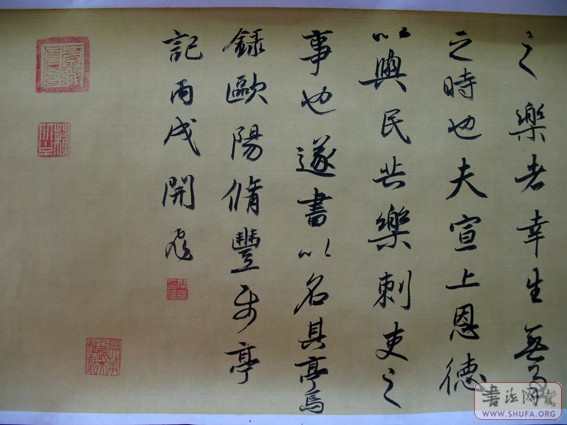 之樂者幸生無事
之時也夫宣上恩德
以與民共樂刺史之
事也遂書以名其亭焉
録歐陽脩豐樂亭
記丙戌開
书法网
WWW.SHUFA.COM